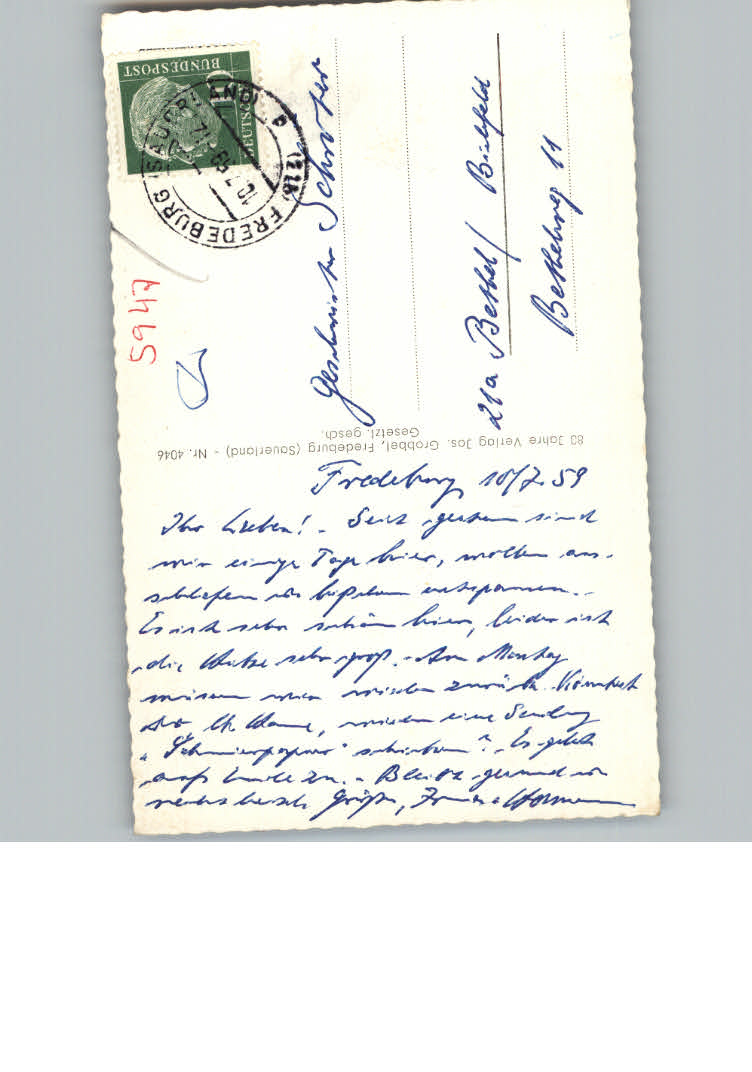 DEUTSCHE
BUNDESPOST
(21b) FREDEBURG (SAUERLAND)
b
5947
Geschwister Schröter
21a Bethel / Bielefeld
Bethelweg 11
83 Jahre Verlag Jos. Grobbel, Fredeburg (Sauerland) - Nr. 4046
Gesetzl. gesch.
Fredeburg, 10/7.59
Ihr Lieben! - Seit gestern sind
wir einige Tage hier, wollen aus-
schlafen u. bißchen entspannen. -
Es ist sehr schön hier, leider ist
die Hitze sehr groß. - Am Montag
müssen wir wieder zurück. Könntest
Du, lb. wieder eine Sendung
"Schmierpapier" schicken? - Es geht
aufs Ende zu. - Bleibt gesund u.
recht herzl. Grüße,